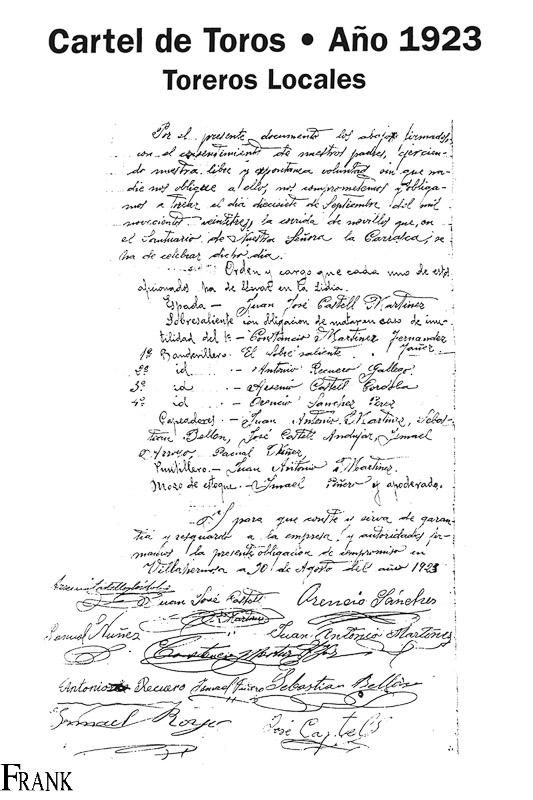 Cartel de Toros • Año 1923
Toreros Locales
Por el presente documento los abajo firmados,
con el consentimiento de nuestros padres, ejercien-
do nuestra libre y espontanea voluntad sin que na-
die nos obligue a ello, nos comprometemos y obliga-
mos a torear el dia diecisiete de Septiembre del mil
novecientos veintitres, la corrida de novillos que, en
el Santuario de Nuestra Señora la Carrasca, se
ha de celebrar dicho dia.
Orden y cargo que cada uno de estos
aficionados ha de llevar en la lidia.
Espada — Juan José Castell Martinez
Sobresaliente con obligacion de matar en caso de inu-
tilidad del 1º — Constancio Martinez Fernandez
1º Banderillero. El Sobresaliente
2º id — Antonio Recuero Gallego
3º id — Arsenio Castell Cordoba
4º id — Orencio Sanchez Perez
Capeadores — Juan Antonio Martinez, Sebas-
tian Bellon, José Castell Andujar, Ismael
Pascual Nuñez
Puntillero — Juan Antonio Martinez.
Mozo de estoque — Ismael Piñero y apoderado.
Y para que conste y sirva de garan-
tia y resguardo a la empresa y autoridades fir-
mamos la presente obligacion de compromiso en
Villahermosa a 20 de Agosto del año 1923
Juan José Castell
Martinez
Orencio Sánches
Nuñez
Juan Antonio Martinez
Antonio Recuero
Ismael Piñero
Sebastian Bellón
Ismael
José Castell
FRANK